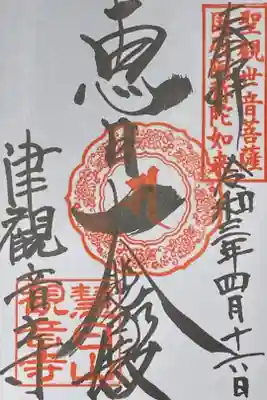 奉拝
聖觀世音菩薩
國府阿弥陀如来
令和三年四月十六日
恵日
津觀音寺
慧日山
觀音寺